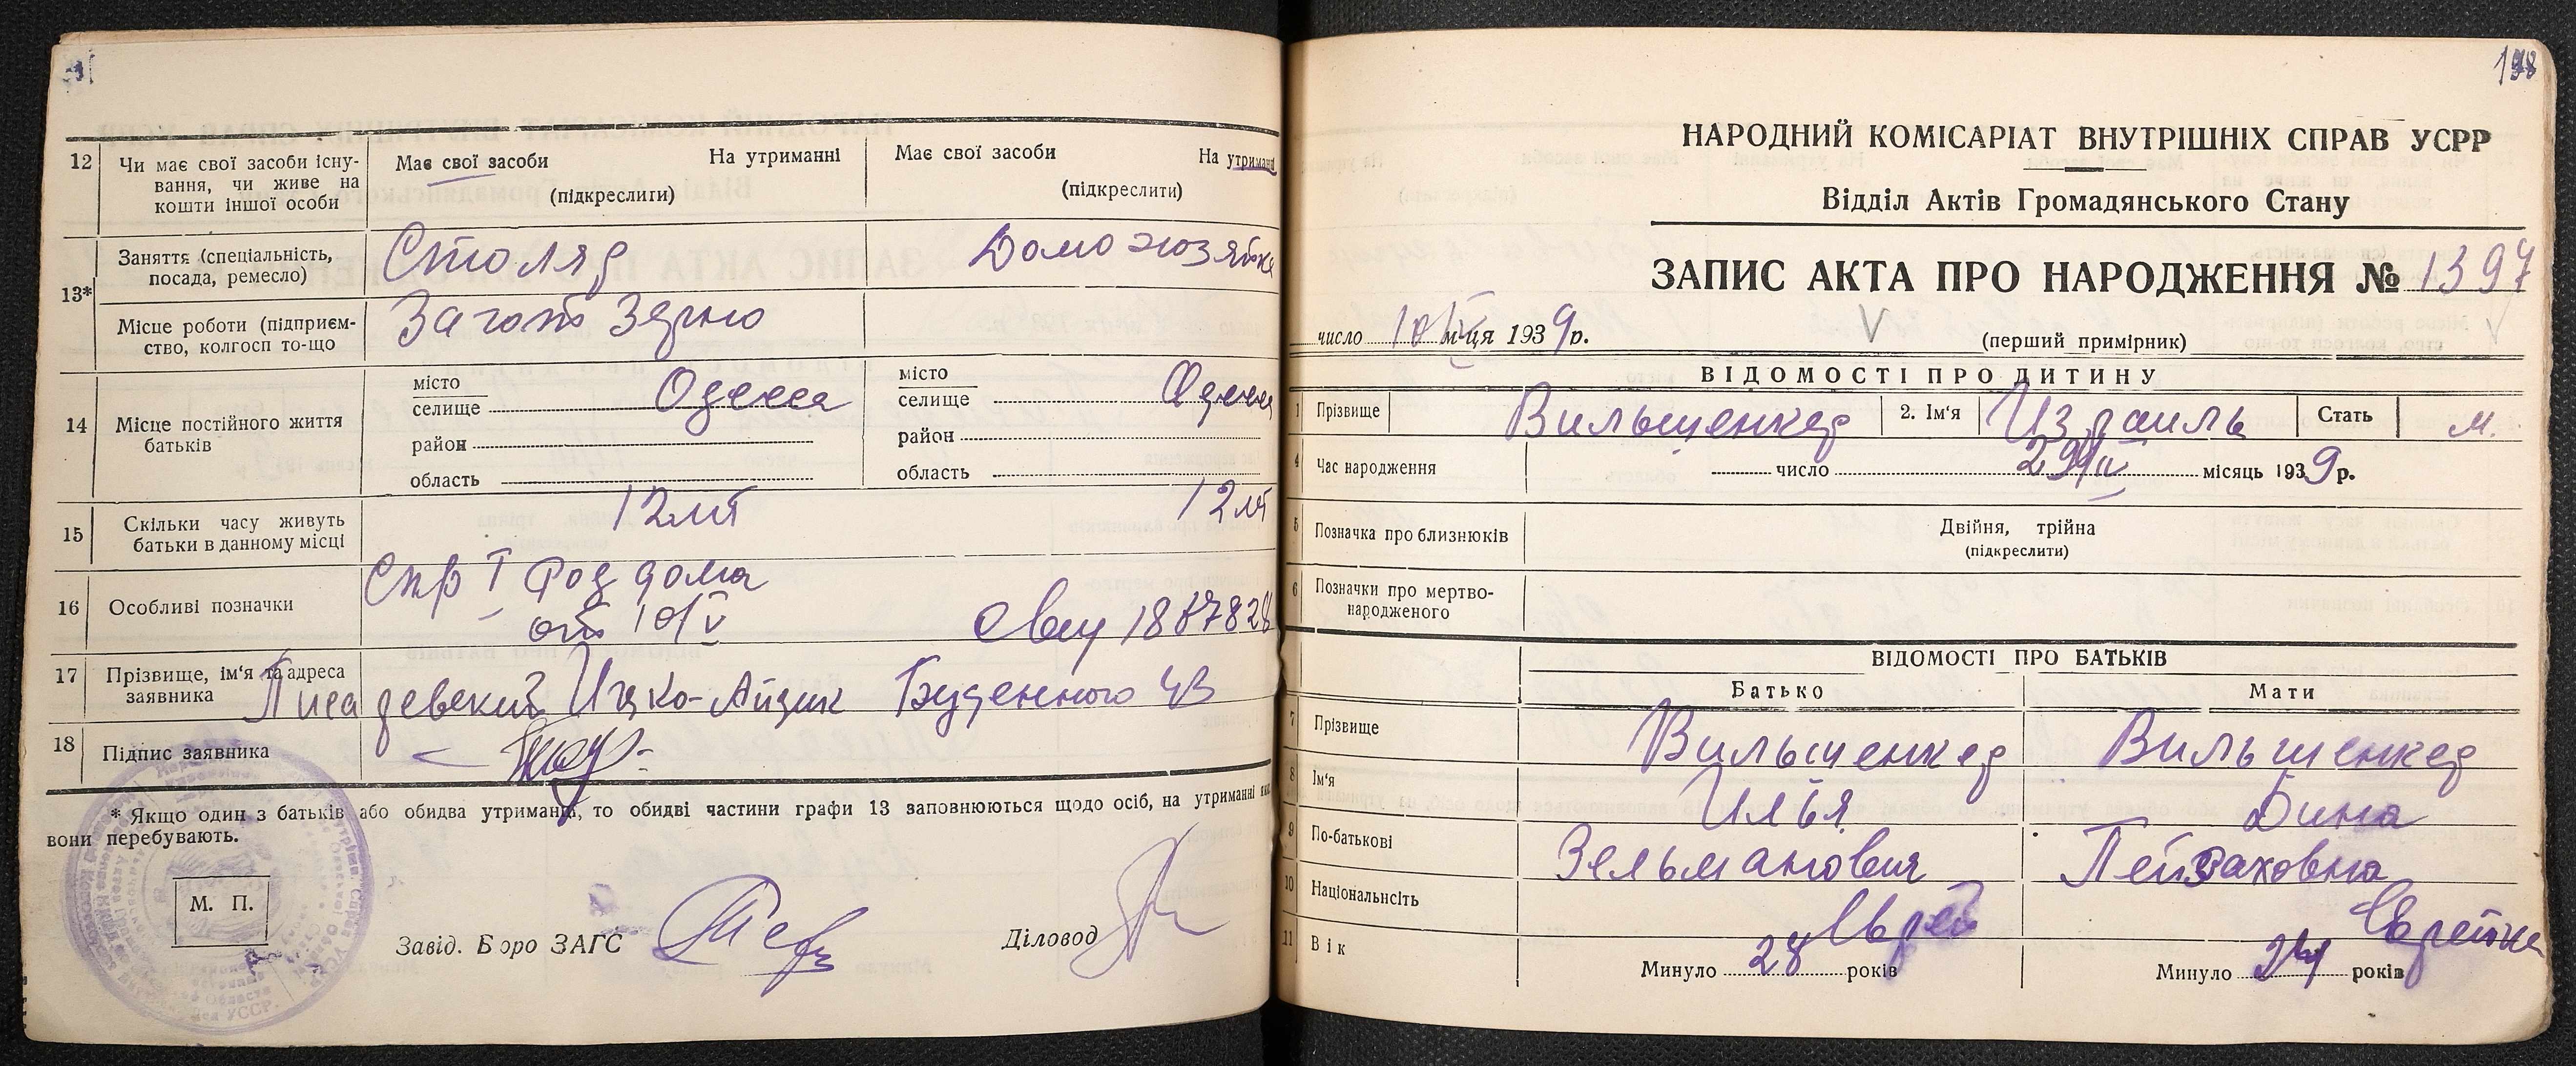 12 Чи має свої засоби існу-
вання, чи живе на
кошти іншої особи
Має свої засоби На утриманні
(підкреслити)
Має свої засоби На утриманні
(підкреслити)
13*
Заняття (спеціальність,
посада, ремесло)
Столяр
Домохозяйка
Місце роботи (підприєм-
ство, колгосп то-що
Загот Зерно
14 Місце постійного життя
батьків
місто
селище Одесса
район
область
місто
селище Одесса
район
область
15 Скільки часу живуть
батьки в данному місці
12 лет
12 лет
16 Особливі позначки
Спр I Род дома
от 10/V
17 Прізвище, ім'я та адреса
заявника
Ицко-Айзик Буденного 43
18 Підпис заявника
* Якщо один з батьків або обидва утриманці, то обидві частини графи 13 заповнюються щодо осіб, на утриманні яких
вони перебувають.
М. П.
Завід. Бюро ЗАГС
Діловод
198
НАРОДНИЙ КОМІСАРІАТ ВНУТРІШНІХ СПРАВ УСРР
Відділ Актів Громадянського Стану
ЗАПИС АКТА ПРО НАРОДЖЕННЯ № 1397
число 10/V м-ця 1939р.
(перший примірник)
ВІДОМОСТІ ПРО ДИТИНУ
1 Прізвище Вильшенкер 2. Ім'я Израиль Стать м.
4 Час народження число 29/IV місяць 1939р.
5 Позначка про близнюків
Двійня, трійна
(підкреслити)
6 Позначки про мертво-
народженого
ВІДОМОСТІ ПРО БАТЬКІВ
Батько Мати
7 Прізвище Вильшенкер Вильшенкер
8 Ім'я Илья Дина
9 По-батькові Зельманович Пейзаховна
10 Національнсіть Еврей Еврейка
11 Вік Минуло 28 років Минуло 24 років